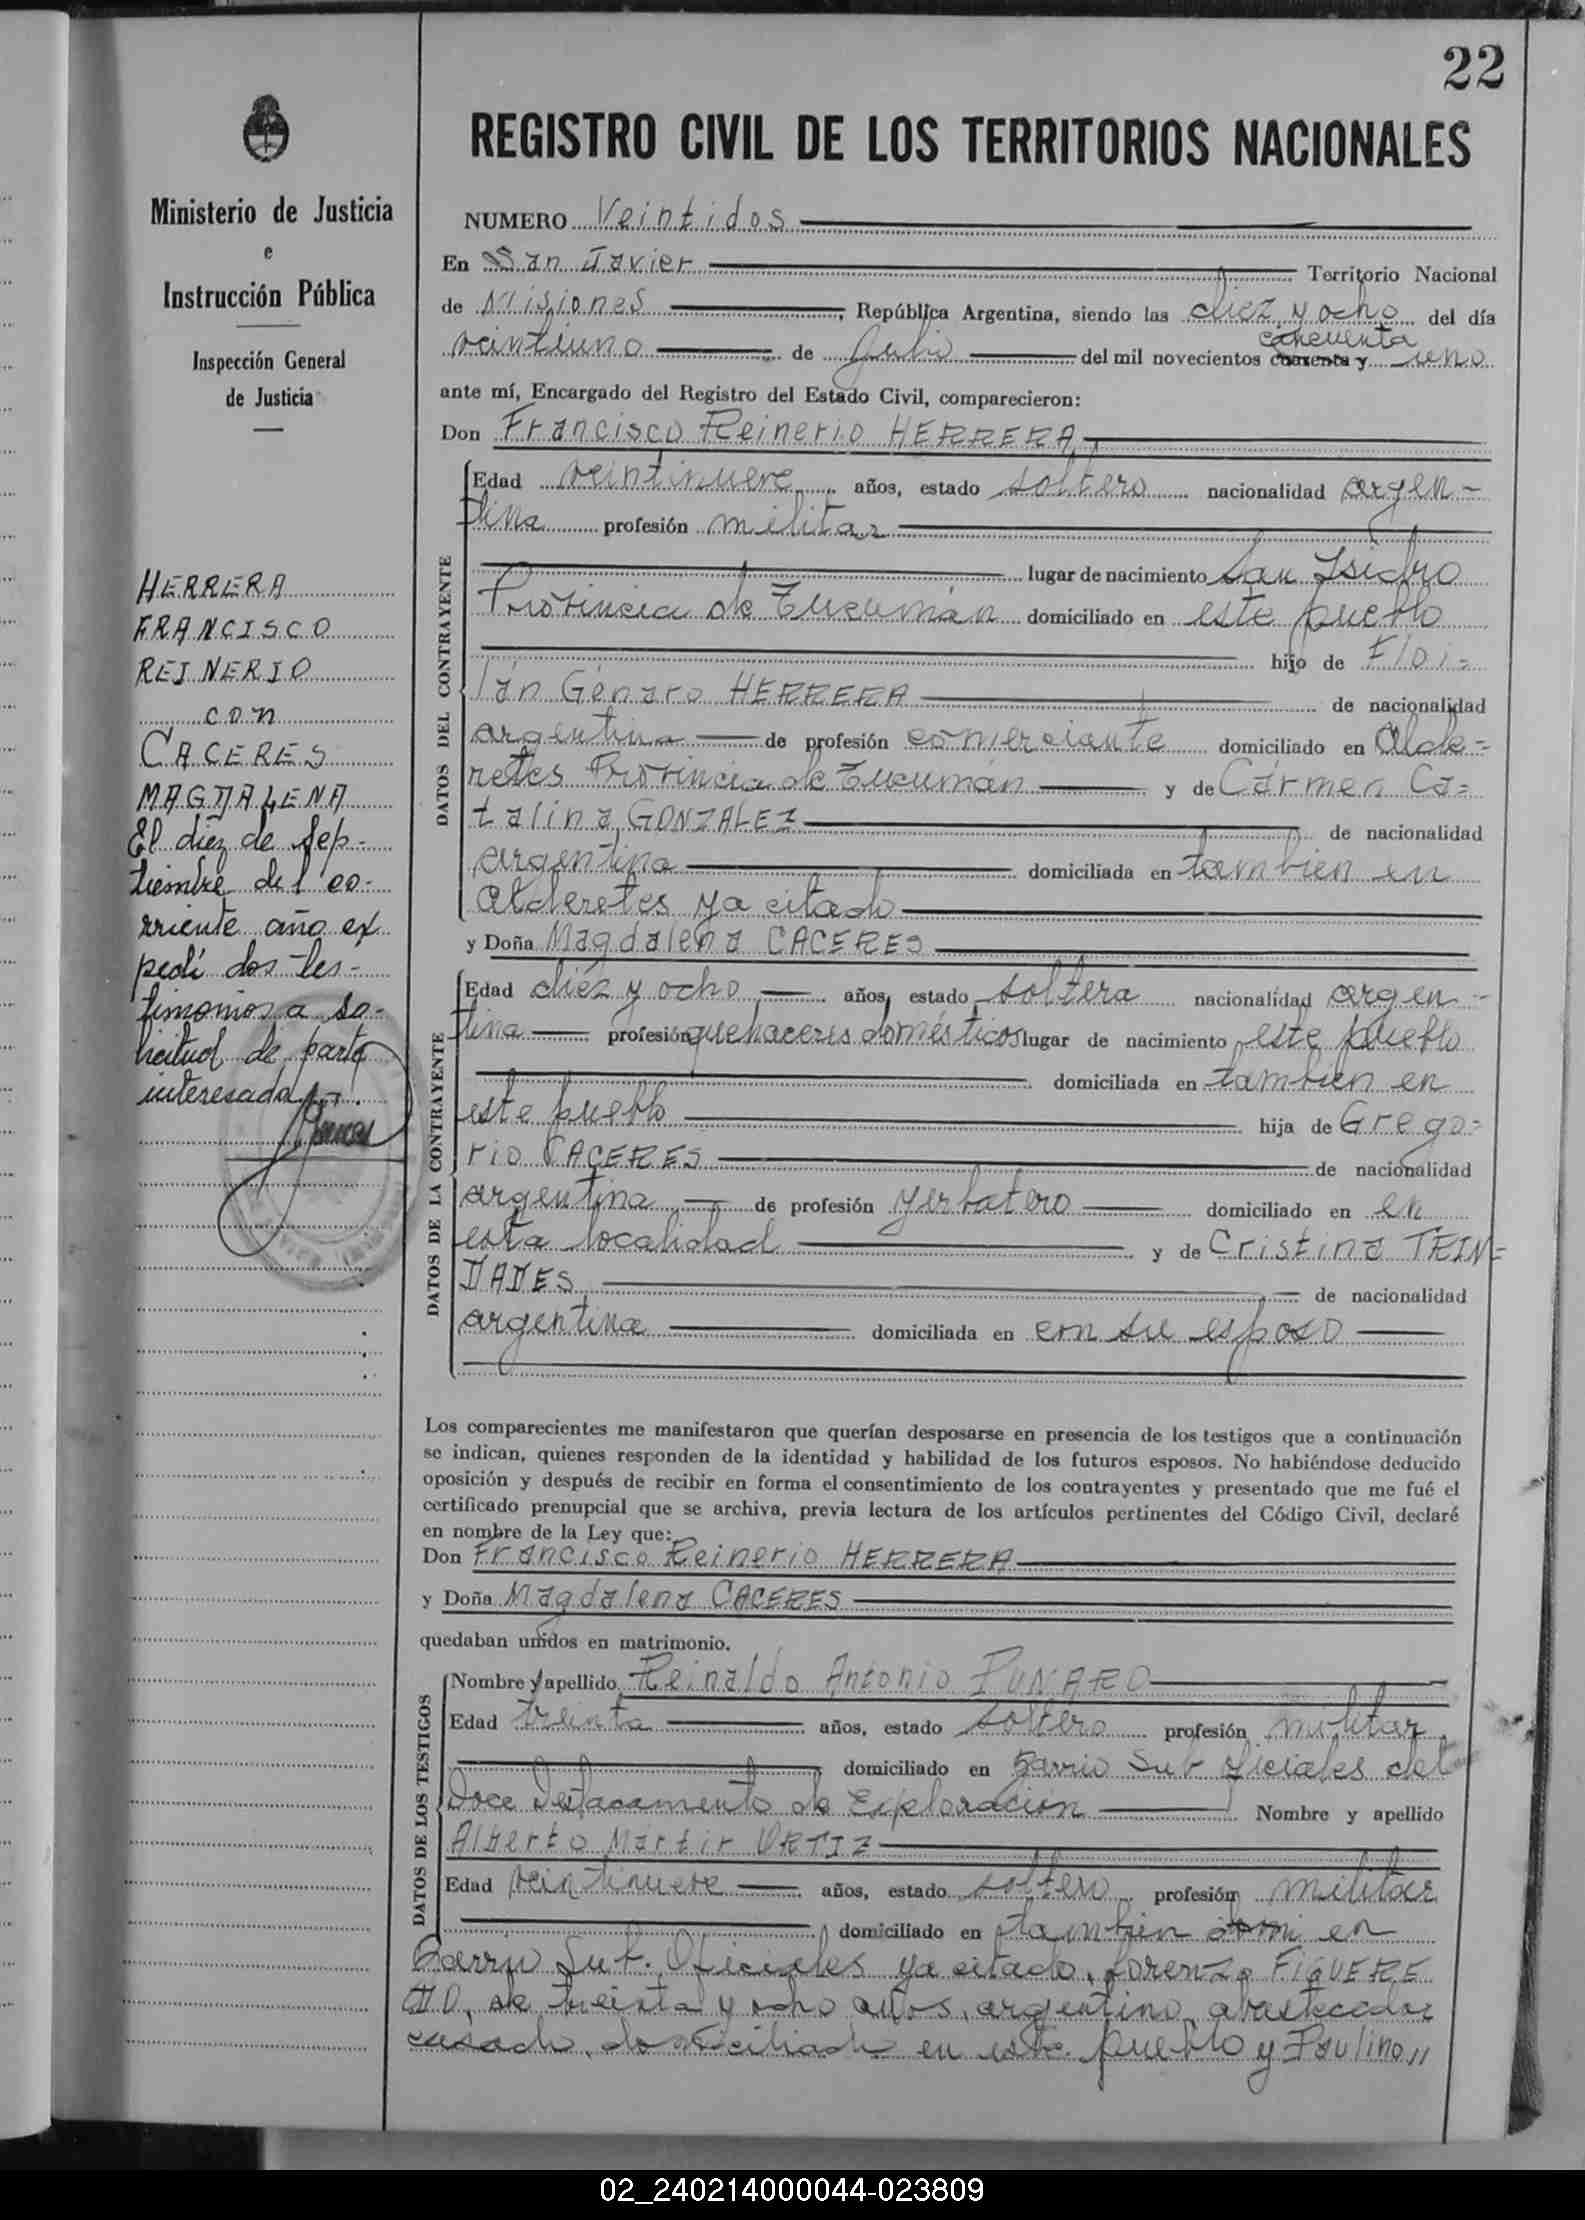 22
REGISTRO CIVIL DE LOS TERRITORIOS NACIONALES
Ministerio de Justicia
e
Instrucción Pública
Inspección General
de Justicia
HERRERA
FRANCISCO
REINERIO
con
CACERES
MAGDALENA
El diez de sep-
tiembre del co-
rriente año ex
pedí dos tes-
timonios a so-
licitud de parte
interesada
NUMERO Veintidos
En San Javier Territorio Nacional
de Misiones, República Argentina, siendo las diez y ocho del día
cincuenta
veintiuno de Julio del mil novecientos cuarenta y uno
ante mí, Encargado del Registro del Estado Civil, comparecieron:
Don Francisco Reinerio HERRERA
DATOS DEL CONTRAYENTE
Edad veintinueve años, estado soltero nacionalidad argen-
tina profesión militar
lugar de nacimiento San Isidro
Provincia de Tucumán domiciliado en este pueblo
hijo de Floi=
lán Génaro HERRERA de nacionalidad
argentina de profesión comerciante domiciliado en Alde=
retes Provincia de Tucumán y de Cármen Ca=
talina GONZALEZ de nacionalidad
argentina domiciliada en tambien en
Alderetes ya citado
y Doña Magdalena CACERES
DATOS DE LA CONTRAYENTE
Edad diez y ocho años, estado soltera nacionalidad argen-
tina profesión quehaceres domésticos lugar de nacimiento este pueblo
domiciliada en tambien en
este pueblo hija de Grego=
rio CACERES de nacionalidad
argentina de profesión yerbatero domiciliado en en
esta localidad y de Cristina TRIN=
DADES de nacionalidad
argentina domiciliada en con su esposo
Los comparecientes me manifestaron que querían desposarse en presencia de los testigos que a continuación
se indican, quienes responden de la identidad y habilidad de los futuros esposos. No habiéndose deducido
oposición y después de recibir en forma el consentimiento de los contrayentes y presentado que me fué el
certificado prenupcial que se archiva, previa lectura de los artículos pertinentes del Código Civil, declaré
en nombre de la Ley que:
Don Francisco Reinerio HERRERA
y Doña Magdalena CACERES
quedaban unidos en matrimonio.
DATOS DE LOS TESTIGOS
Nombre y apellido Reinaldo Antonio PUNARO
Edad treinta años, estado soltero profesión militar
domiciliado en Barrio Sub oficiales del
Doce Destacamento de Exploración Nombre y apellido
Alberto Martir ORTIZ
Edad veintinueve años, estado soltero profesión militar
domiciliado en tambien en
Barrio Sub. Oficiales ya citado, Lorenzo FIGUERE
DO, de treinta y ocho años, argentino, abastecedor
casado, domiciliado en este pueblo y Paulino,,
02_240214000044-023809